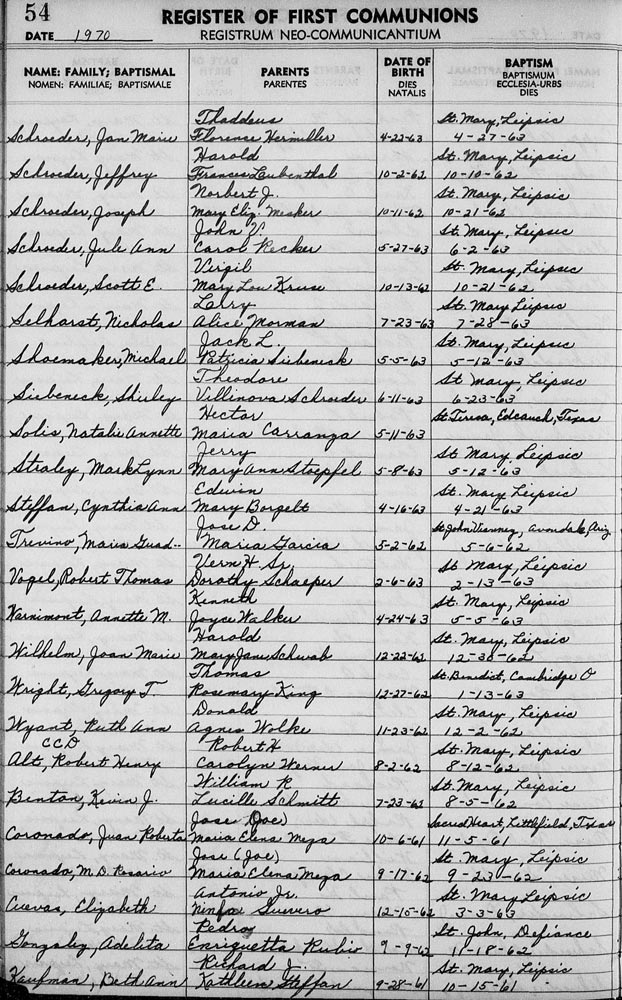 54
REGISTER OF FIRST COMMUNIONS
DATE 1970
REGISTRUM NEO-COMMUNICANTIUM
NAME: FAMILY; BAPTISMAL
NOMEN: FAMILIAE; BAPTISMALE
PARENTS
PARENTES
DATE OF BIRTH
DIES NATALIS
BAPTISM
BAPTISMUM
ECCLESIA-URBS
DIES
Thaddeus St. Mary, Leipsic
Schroeder, Jan Marie Florence Hermiller 4-22-63 4-27-63
Harold St. Mary, Leipsic
Schroeder, Jeffrey Frances Laubenthal 10-2-62 10-10-62
Norbert J. St. Mary, Leipsic
Schroeder, Joseph Mary Eliz. Mesker 10-11-62 10-21-62
John V. St. Mary, Leipsic
Schroeder, Jule Ann Carol Recker 5-27-63 6-2-63
Virgil St. Mary, Leipsic
Schroeder, Scott E. Mary Lou Kruse 10-13-62 10-21-62
Larry St. Mary Leipsic
Selhorst, Nicholas Alice Morman 7-23-63 7-28-63
Jack L. St. Mary, Leipsic
Shoemaker, Michael Patricia Siebeneck 5-5-63 5-12-63
Theodore St. Mary, Leipsic
Siebeneck, Shirley Villinova Schroeder 6-11-63 6-23-63
Hector St. Teresa, Edcouch, Texas
Solis, Natalie Annette Maria Carranza 5-11-63
Jerry St. Mary, Leipsic
Straley, Mark Lynn Mary Ann Stoepfel 5-8-63 5-12-63
Edwin St. Mary, Leipsic
Steffan, Cynthia Ann Mary Borgelt 4-16-63 4-21-63
Jose D. St John Vianney, Avondale, Ariz
Trevino, Maria Guad-- Maria Garcia 5-2-62 5-6-62
Vern H. Sr. St. Mary, Leipsic
Vogel, Robert Thomas Dorothy Schaeper 2-6-63 2-13-63
Kenneth St. Mary, Leipsic
Warnimont, Annette M. Joyce Walker 4-24-63 5-5-63
Harold St. Mary, Leipsic
Wilhelm, Joan Marie Mary Jane Schwab 12-22-62 12-30-62
Thomas St. Benedict, Cambridge O
Wright, Gregory T. Rosemary King 12-27-62 1-13-63
Donald St. Mary, Leipsic
Wyant, Ruth Ann Agnes Wolke 11-23-62 12-2-62
CCD Robert H St. Mary, Leipsic
Alt, Robert Henry Carolyn Werner 8-2-62 8-12-62
William R St. Mary, Leipsic
Benton, Kevin J. Lucille Schmitt 7-23-62 8-5-62
Jose (Joe) Sacred Heart, Littlefield, Texas
Coronado, Juan Roberto Maria Elena Meza 10-6-61 11-5-61
Jose (Joe) St. Mary, Leipsic
Coronado, M. D. Rosario Maria Elena Meza 9-17-62 9-23-62
Antonio Jr. St. Mary Leipsic
Cuevas, Elizabeth Ninfa Guerero 12-15-62 3-3-63
Pedro St. John, Defiance
Gonzalez, Adelita Enriquetta Rubio 9-9-62 11-18-62
Richard J. St. Mary, Leipsic
Kaufman, Beth Ann Kathleen Steffan 9-28-61 10-15-61